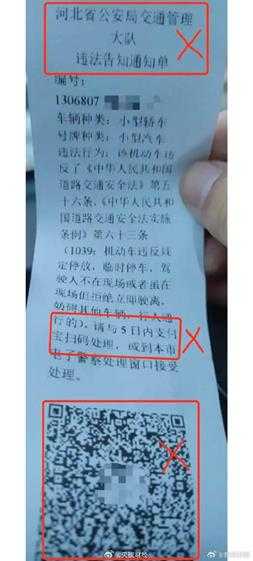 河北省公安局交通管理
大队
违法告知通知单
编号:
1306807
车辆种类: 小型轿车
号牌种类: 小型汽车
违法行为: 该机动车违
反了《中华人民共和国
道路交通安全法》第五
十六条,《中华人民共和
国道路交通安全法实施
条例》第六十三条
(1039: 机动车违反规
定停放, 临时停车, 驾
驶人不在现场或者虽在
现场但拒绝立即驶离,
妨碍其他车辆, 行人通
行的), 请与5日内支付
宝扫码处理, 或到本市
电子警察处理窗口接受
处理。